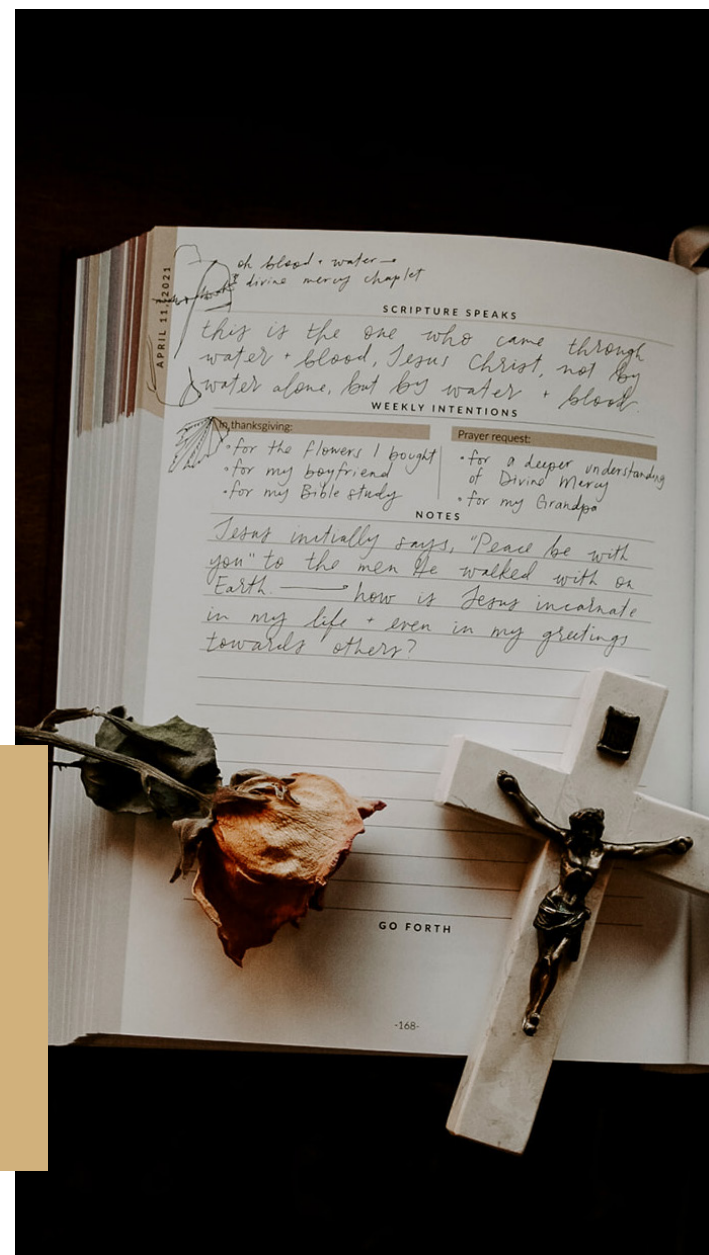 oh blood + water →
divine mercy chaplet
APRIL 11, 2021
SCRIPTURE SPEAKS
this is the one who came through
water + blood, Jesus Christ, not by
water alone, but by water + blood.
WEEKLY INTENTIONS
In thanksgiving:
• for the flowers I bought
• for my boyfriend
• for my Bible study
Prayer request:
• for a deeper understanding
of Divine Mercy
• for my Grandpa
NOTES
Jesus initially says, "Peace be with
you" to the men He walked with on
Earth. → how is Jesus incarnate
in my life + even in my greetings
towards others?
GO FORTH
-168-